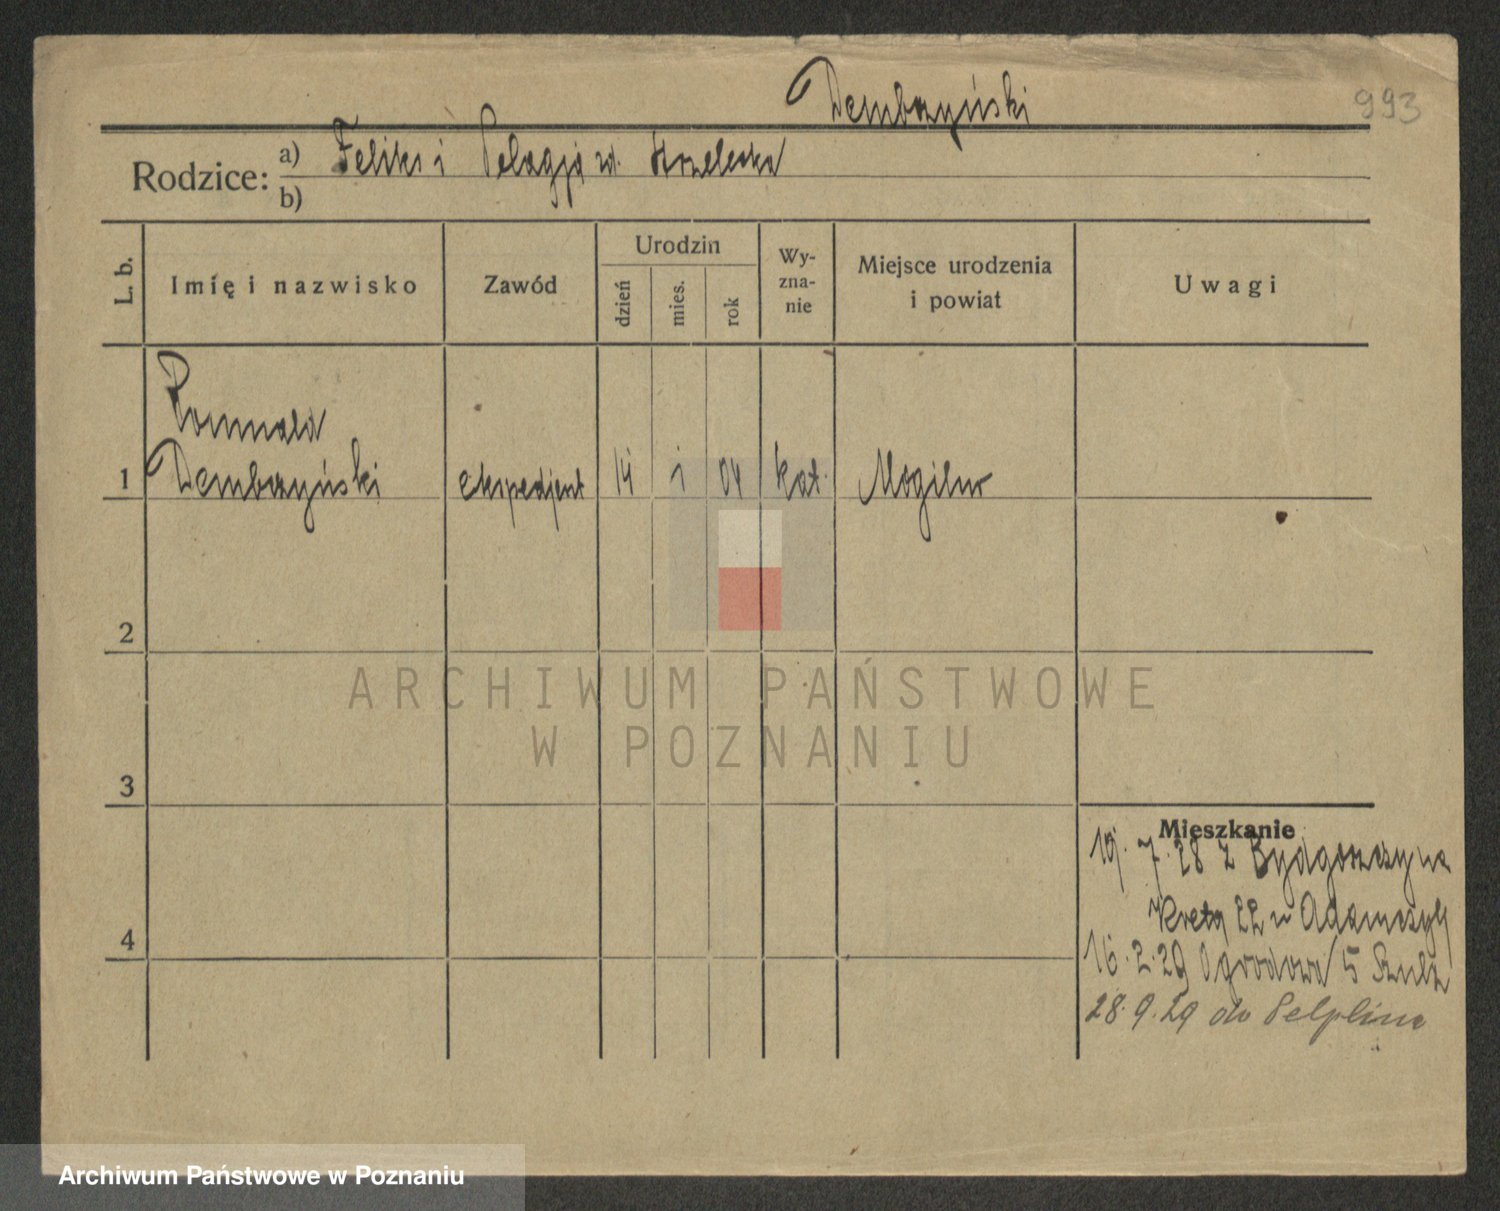 Dembczyński
993
Rodzice: a) Feliks i Pelagja zd. Strzelecka
b)
L. b.
Imię i nazwisko
Zawód
Urodzin
dzień
mies.
rok
Wy-
zna-
nie
Miejsce urodzenia
i powiat
Uwagi
Romuald
1 Dembczyński ekspedjent 14 1 04 kat. Mogilno
2
3
4
Mieszkanie
19.7.28 z Bydgoszczy na
22 u
16.2.29 Ogrodowa 5
28.9.29 do Pelplina
ARCHIWUM PAŃSTWOWE
W POZNANIU
Archiwum Państwowe w Poznaniu